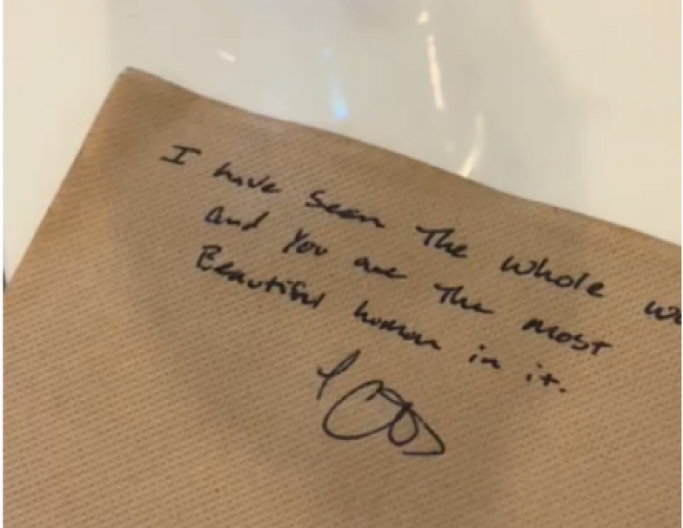 I have seen The whole
and You are the most
Beautiful human in it.